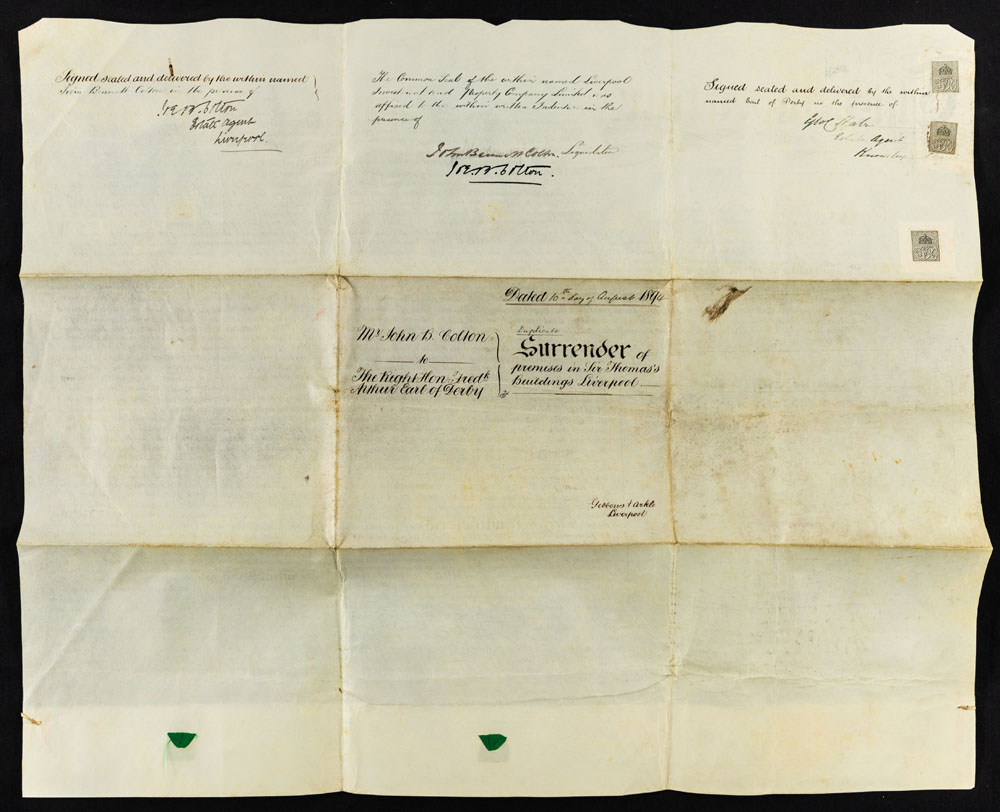 Signed sealed and delivered by the within named
John Bennett Colton in the presence of
Jos. W. Colton
Estate Agent
Liverpool.
The Common Seal of the within named Liverpool
Investment and Property Company Limited was
affixed to the within written Indenture in the
presence of
John Bennett Colton. Liquidator
Jos. W. Colton.
Signed sealed and delivered by the within
named Earl of Derby in the presence of
Estate Agent
Knowsley
Dated 10th day of August 1894
Mr. John B. Colton
to
The Right Hon. Fredk.
Arthur Earl of Derby
Duplicate
Surrender of
premises in Sir Thomas's
Buildings Liverpool
Gibbons & Arkle
Liverpool